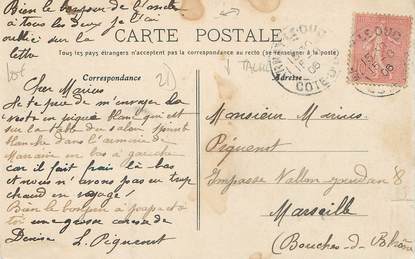 Bien le bonjour de l'
à tous les deux je l'ai
oublié sur la
lettre
CARTE POSTALE
Tous les pays étrangers n'acceptent pas la correspondance au recto (se renseigner à la poste)
Correspondance
Adresse
21)
TALMAY
LE-DUC
COTE-D'OR
06
Cher Marius
Je te prie de m'envoyer la
veste en piqué blanc qui est
sur la table du salon
blanche dans l'armoire de
Maman en bas à gauche
car il fait frais là bas
et nous n'avons pas eu trop
chaud en voyage
Bien le bonjour à papa et à
toi une grosse caresse de
Denise L. Piguenot
Monsieur Marius
Piguenot
Impasse Vallon 8
Marseille
(Bouches-du-Rhône